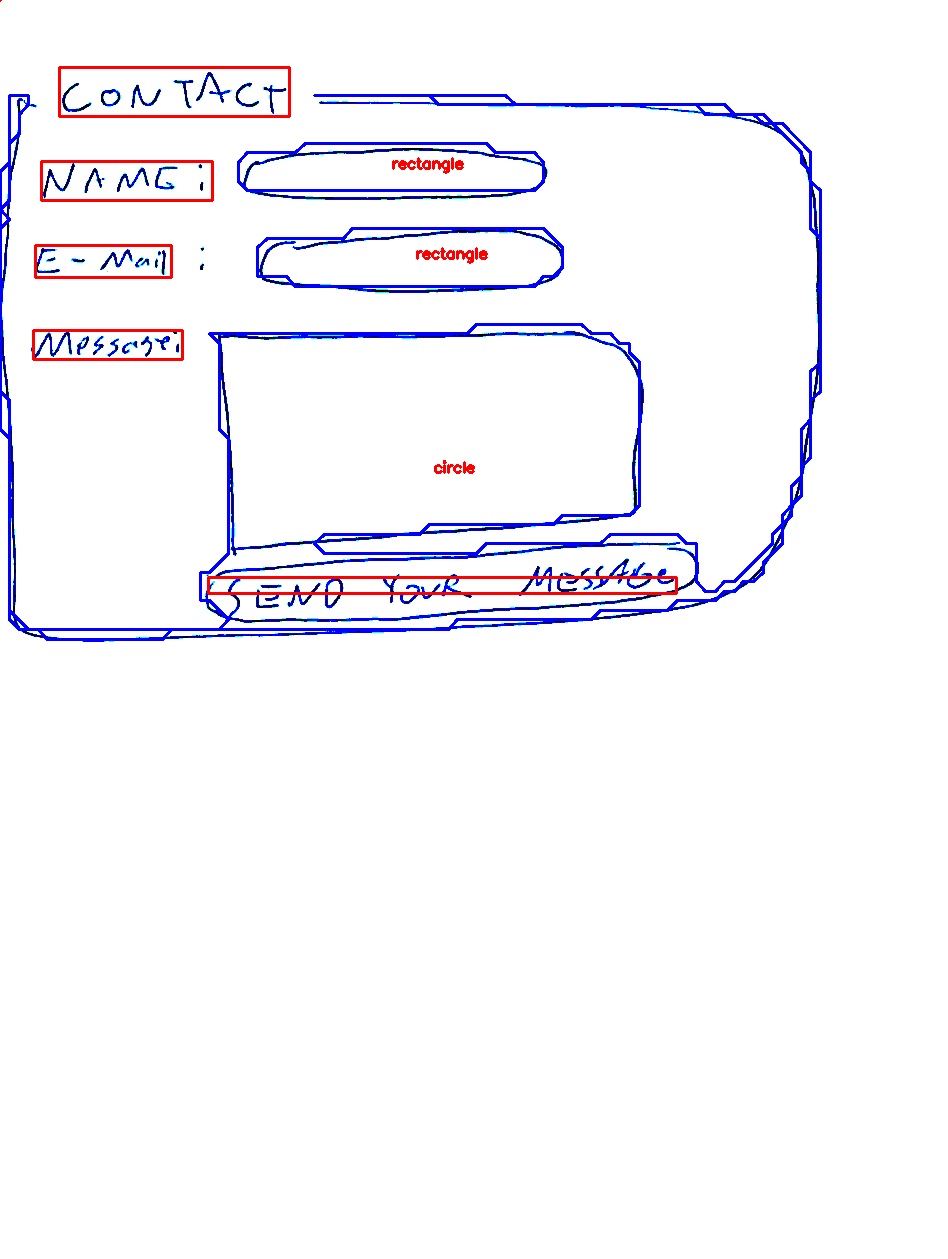 CONTACT
NAME: rectangle
E-Mail : rectangle
Message:
circle
SEND YOUR MESSAGE